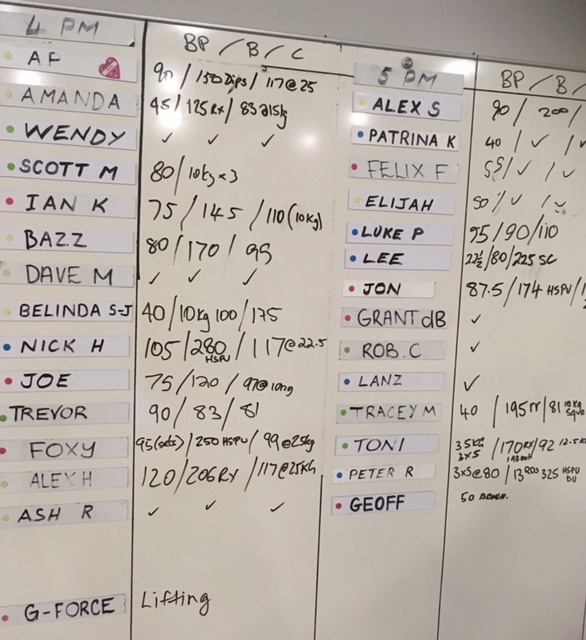 4 PM
BP / B / C
AP 90 / 150 Dips / 117@25
AMANDA 45 / 125 Rx / 83@15kg
WENDY ✓ ✓ ✓
SCOTT M 80 / 10kg x 3
IAN K 75 / 145 / 110 (10kg)
BAZZ 80 / 170 / 99
DAVE M ✓ ✓ ✓
BELINDA S-J 40 / 10kg 100 / 175
NICK H 105 / 280 HSPU / 117@22.5
JOE 75 / 120 / 97@10kg
TREVOR 90 / 83 / 81
FOXY 95 / 250 HSPU / 99@25kg
ALEX H 120 / 206 RX / 117@25KG
ASH R ✓ ✓ ✓
G-FORCE Lifting
5 PM
BP / B /
ALEX S 90 / 200 /
PATRINA K 40 / ✓ /
FELIX F 55 / ✓ /
ELIJAH 50 / ✓ /
LUKE P 95 / 90 / 110
LEE 22½ / 80 / 225 SC
JON 87.5 / 174 HSPU /
GRANT dB ✓
ROB.C ✓
LANZ ✓
TRACEY M 40 / 195 / 81 10kg
TONI 35kg 3x5 / 170 RX / 92 12.5
PETER R 3x5@80 / 325 HSPU DU
GEOFF 50 BENCH.